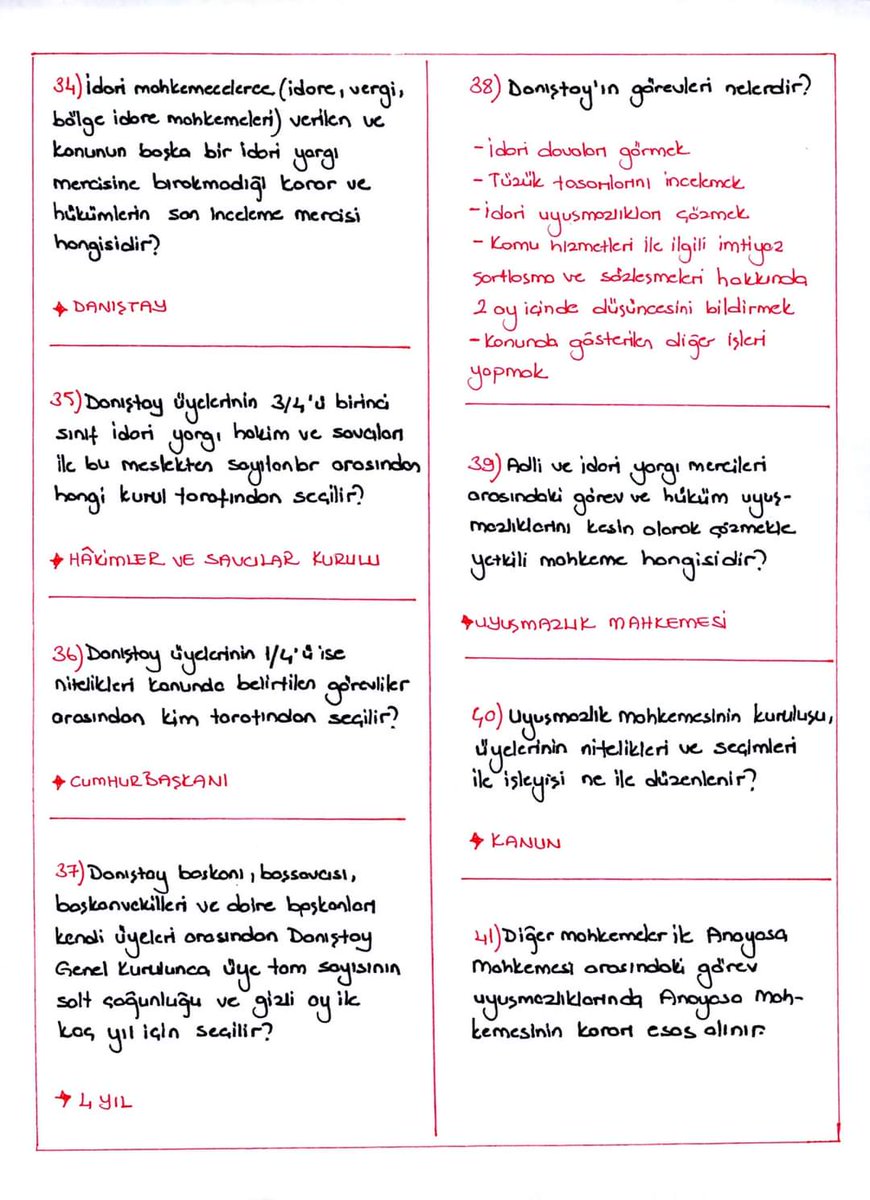 34) İdari mahkemecelerce (idare, vergi,
bölge idare mahkemeleri) verilen ve
kanunun başka bir idari yargı
mercisine bırakmadığı karar ve
hükümlerin son inceleme mercisi
hangisidir?
DANIŞTAY
35) Danıştay üyelerinin 3/4'ü birinci
sınıf idari yargı hakim ve savcıları
ile bu meslekten sayılanlar arasından
hangi kurul tarafından seçilir?
HÂKİMLER VE SAVCILAR KURULU
36) Danıştay üyelerinin 1/4'ü ise
nitelikleri kanunda belirtilen görevliler
arasından kim tarafından seçilir?
CUMHURBAŞKANI
37) Danıştay başkanı, başsavcısı,
başkanvekilleri ve daire başkanları
kendi üyeleri arasından Danıştay
Genel Kurulunca üye tam sayısının
salt çoğunluğu ve gizli oy ile
kaç yıl için seçilir?
4 YIL
38) Danıştay'ın görevleri nelerdir?
- İdari davaları görmek
- Tüzük tasarılarını incelemek
- İdari uyuşmazlıkları çözmek
- Kamu hizmetleri ile ilgili imtiyaz
şartlaşma ve sözleşmeleri hakkında
2 ay içinde düşüncesini bildirmek
- Kanunda gösterilen diğer işleri
yapmak
39) Adli ve idari yargı mercileri
arasındaki görev ve hüküm uyuş-
mazlıklarını kesin olarak çözmekle
yetkili mahkeme hangisidir?
UYUŞMAZLIK MAHKEMESİ
40) Uyuşmazlık mahkemesinin kuruluşu,
üyelerinin nitelikleri ve seçimleri
ile işleyişi ne ile düzenlenir?
KANUN
41) Diğer mahkemeler ile Anayasa
Mahkemesi arasındaki görev
uyuşmazlıklarında Anayasa Mah-
kemesinin kararı esas alınır.